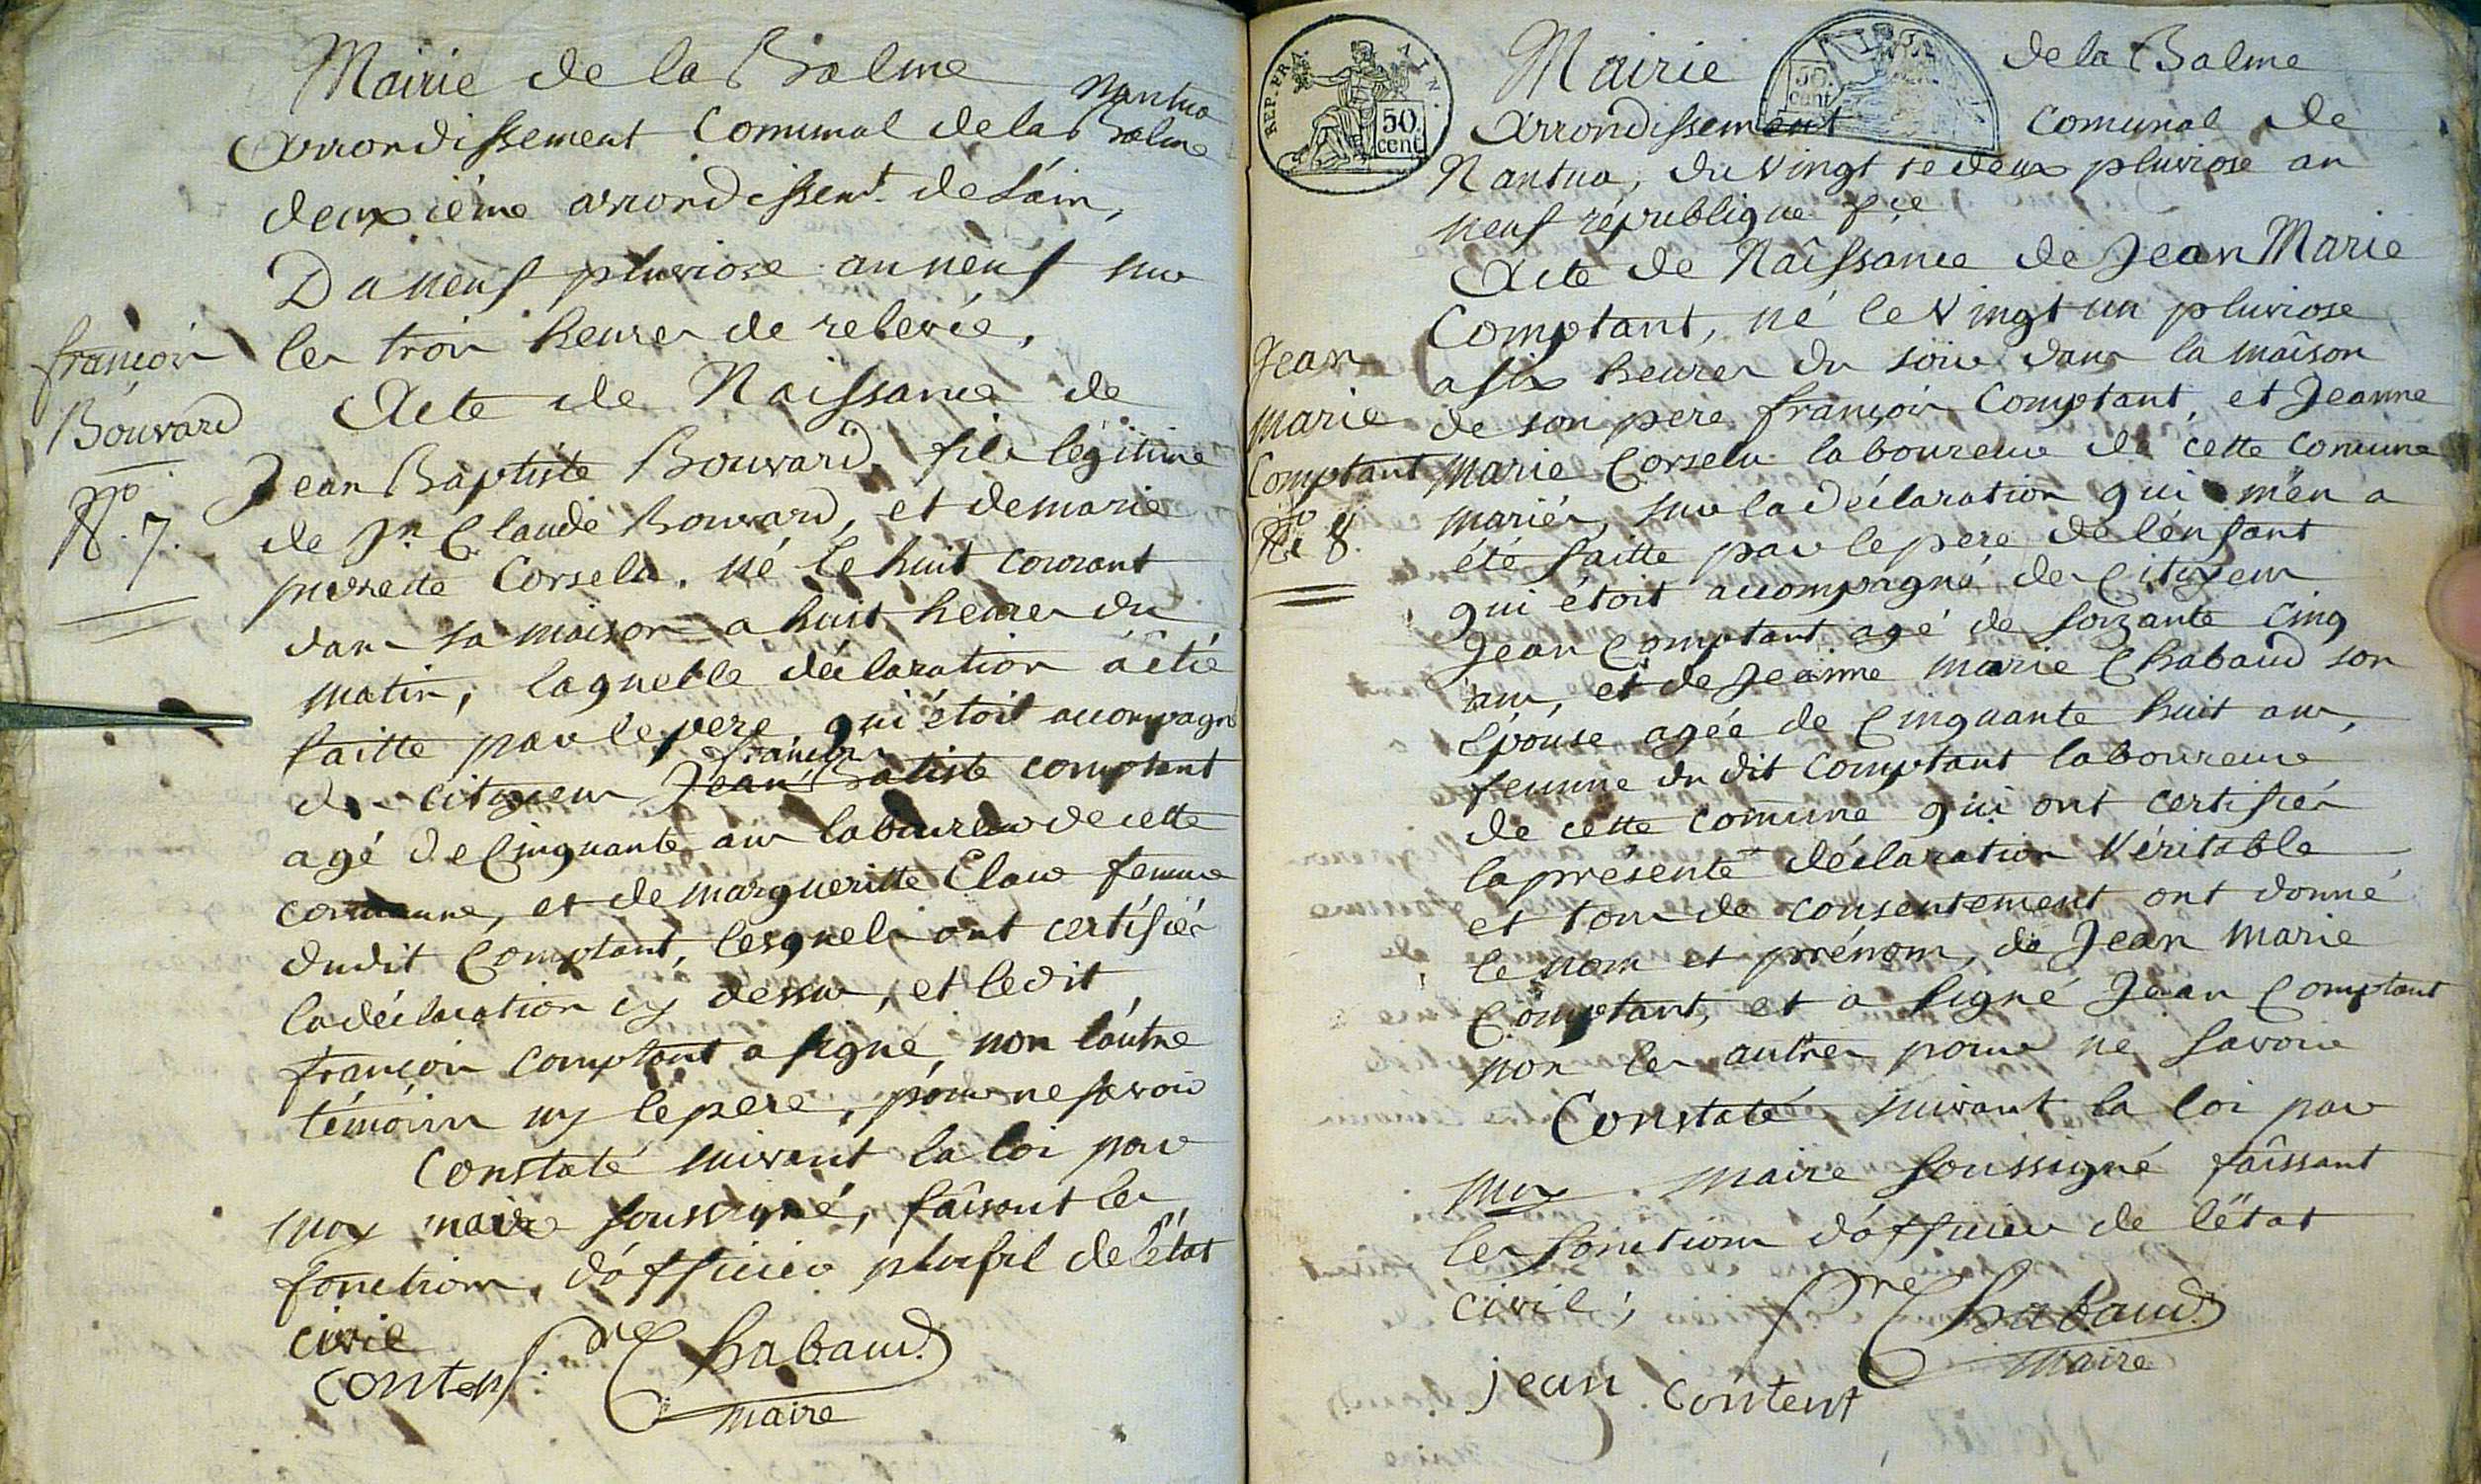 Mairie de la Balme
Nantua
Arrondissement Comunal de la Balme
deuxième arrondissemt. de L'ain,
Du neuf pluviose an neuf sur
les trois heures de relevée,
Acte de Naissance de
françois
Bouvard
No. 7.
Jean Baptiste Bouvard, fils légitime
de Jn Claude Bouvard, et de marie
pierrette Corselu. né le huit courant
dans sa maison a huit heures du
matin, laquelle déclaration a été
faitte par le pere qui étoit accompagné
françois
des citoyens Jean Batiste comptant
agé de Cinquante ans laboureur de cette
commune, et de margueritte femme
dudit Comptant, lesquels ont certifiés
la déclaration cy dessus, et ledit
françois comptant a signé, non l'autre
témoins ny le pere, pour ne savoir
Constaté suivant la loi par
moy maire soussigné, faisant les
fonctions, d'officier de l'état
civil
conten Chabaud
maire
REP. FRA. AIN.
50 cent
50. cent
Mairie de la Balme
Arrondissement Comunal de
Nantua, du vingt deux pluviose an
neuf république fse
Acte de Naîssance de Jean Marie
Jean
Marie
Comptant
No 8.
Comptant, né le vingt un pluviose
a six heures du soir dans la maîson
de son pere françois Comptant, et Jeanne
Marie Corselu laboureur de cette comune
mariés, sur la déclaration qui m'en a
été faitte par le pere de l'enfant
qui étoit accompagné des Citoyens
Jean Comptant agé de soizante Cinq
ans, et de Jeanne marie Chabaud son
épouse agée de Cinquante huit ans,
femme du dit Comptant laboureur
de cette comune qui ont certifiés
la présente déclaration véritable
et tous de consentement ont donné
le nom et prénom, de Jean Marie
Comptant, et a signé Jean Comptant
non les autres pour ne savoir
Constaté suivant la loi par
moy maire soussigné faîssant
les fonctions d'officier de l'état
civil; Chabaud
maire
jean content